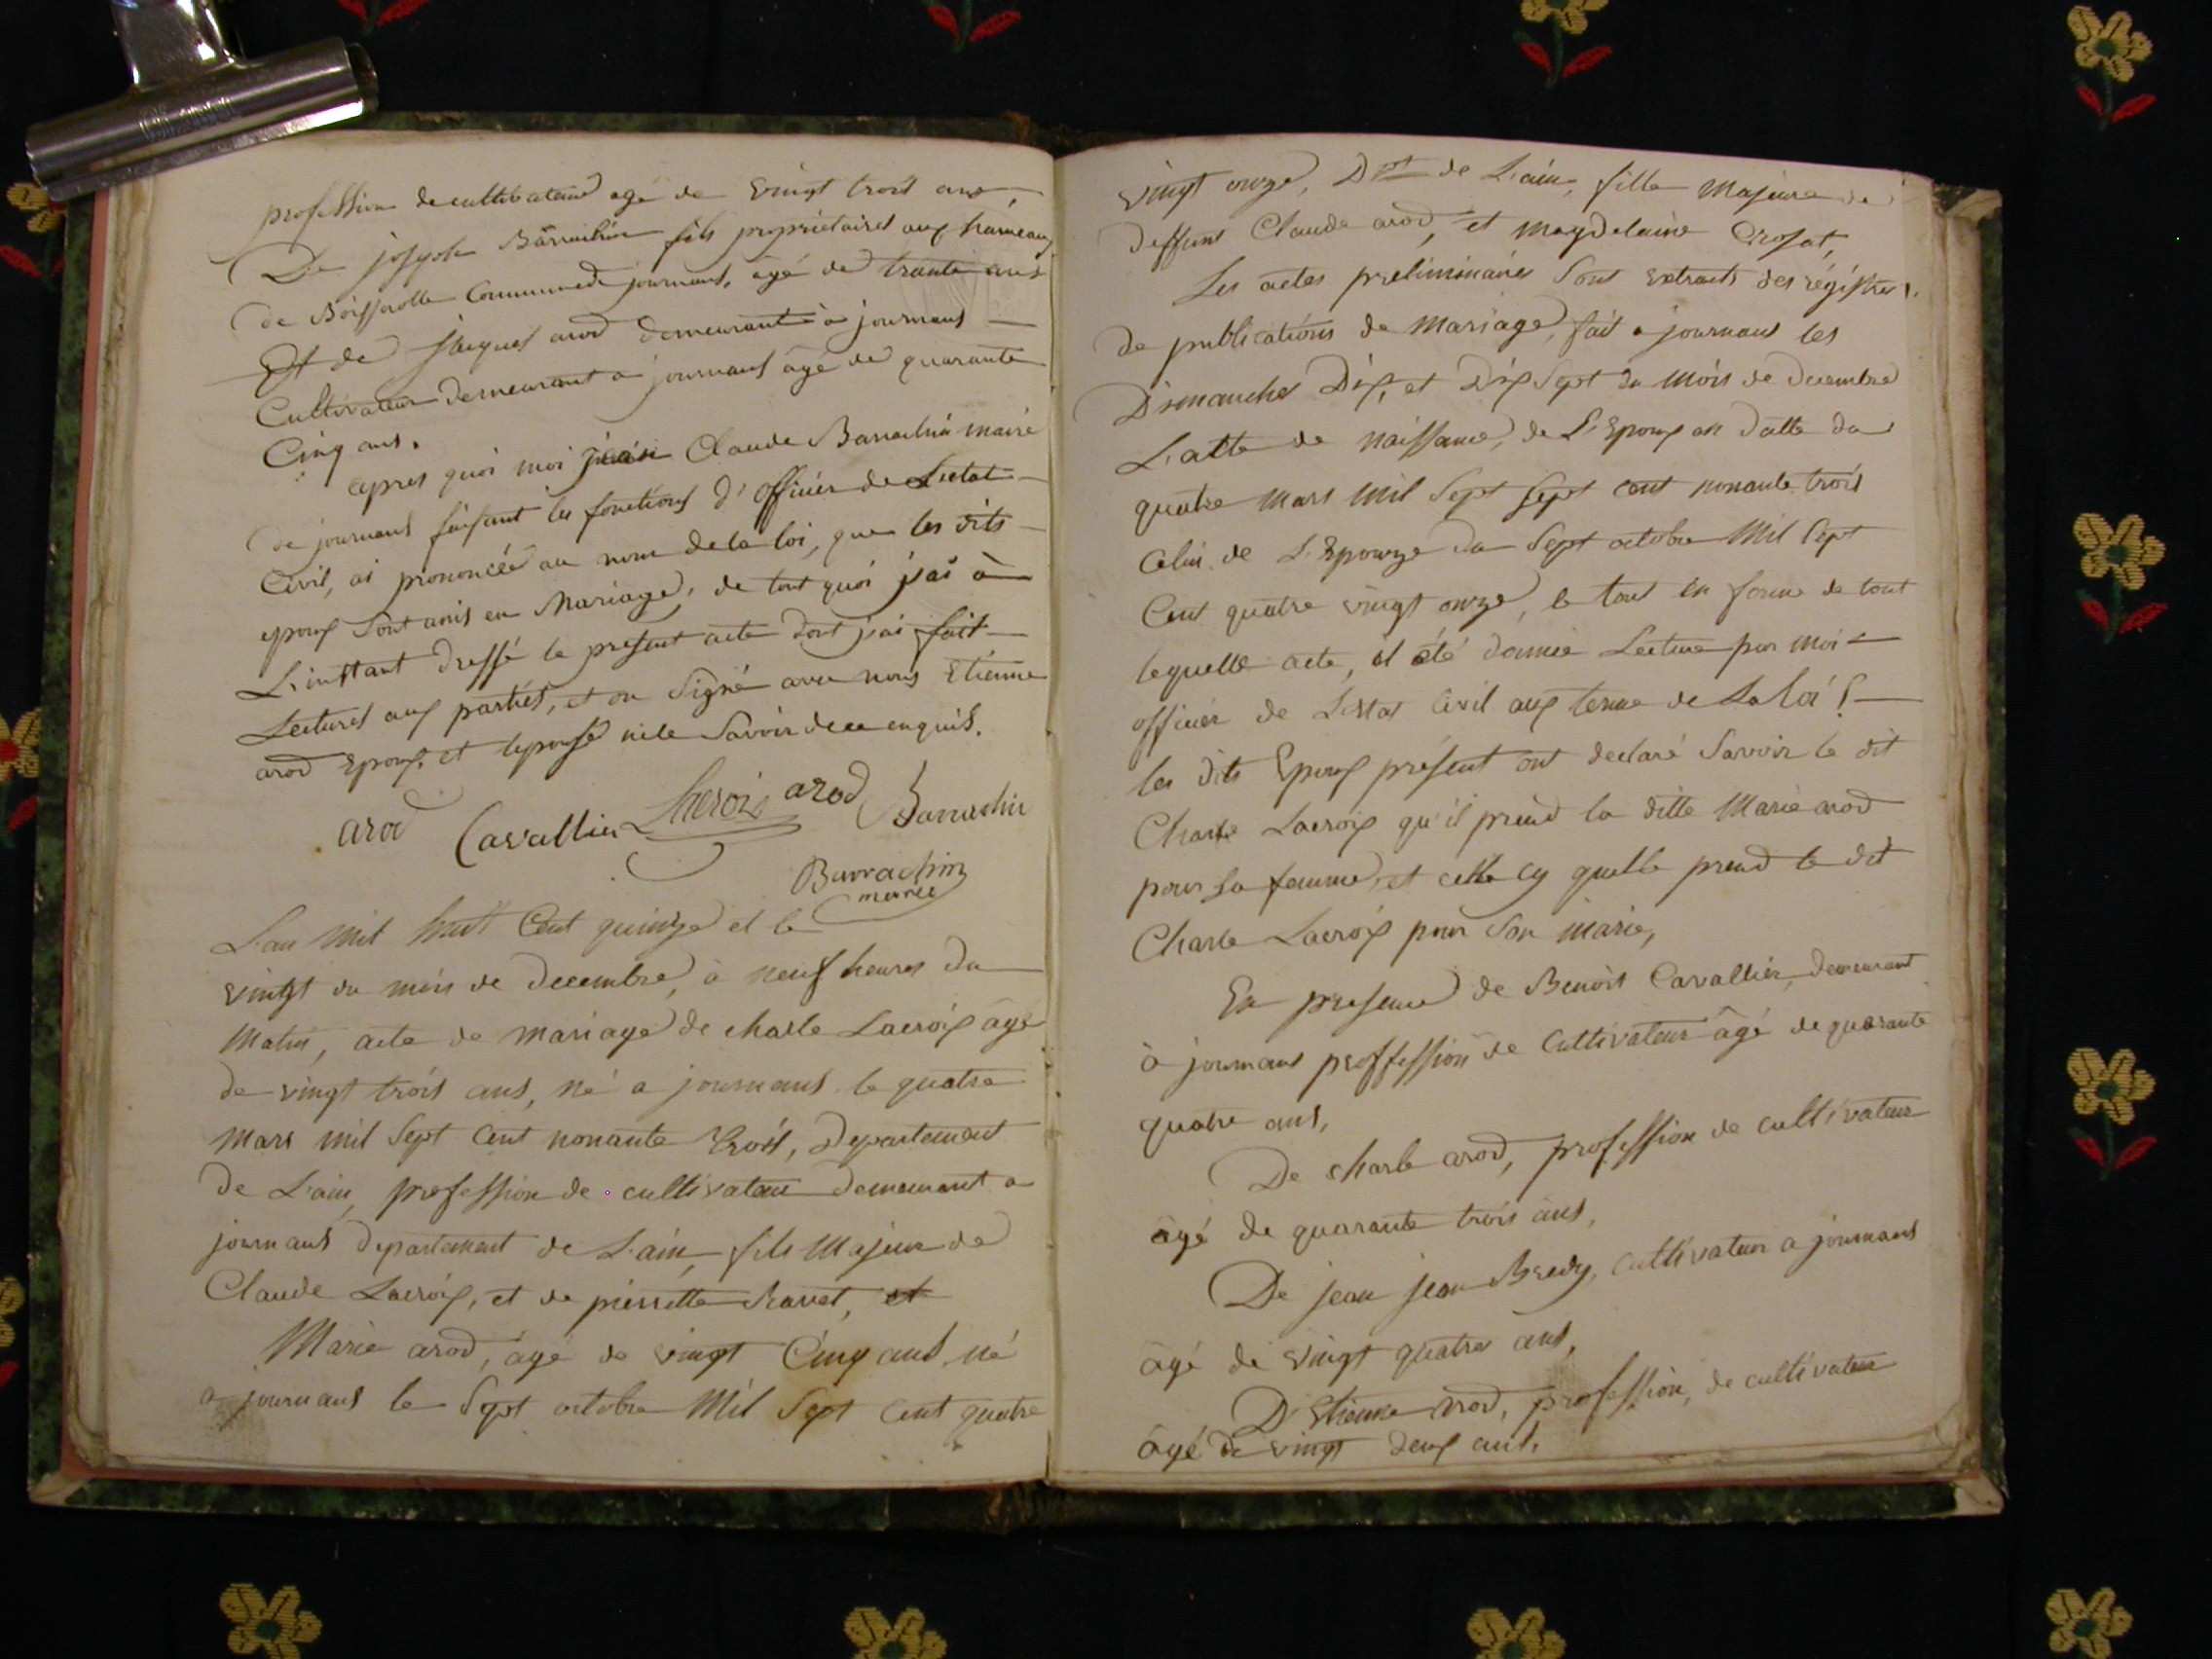 profession de cultivateur agé de vingt trois ans,
De joseph Barrachin fils propriétaires aux hameaux
de Boissrolle Commune de journans, âgé de trante ans
Et de jacques arod demeurant à journans
Cultivateur demeurant a journans âgé de quarante
Cinq ans.
apres quoi moi Claude Barrachin maire
de journans faisant les fonctions d'officier de Letat
Civil, ai prononcée au nom de la loi, que les dits
epoux sont unis en Mariage, de tout quoi j'ai à
L'instant dressé le present acte dont j'ai fait
Lectures aux parties, et on signé avec nous Etienne
arod Epoux, et lepouse ni le savoir de ce enquis.
arod Cavallier Lacroix arod Barrachin
Barrachin
maire
L'an mil huit Cent quinze et le
vingt du mois de decembre, à neuf heures du
Matin, acte de mariage de charle Lacroix âgé
de vingt trois ans, né a journans le quatre
mars mil sept cent nonante trois, Departement
de L'ain, profession de cultivateur demeurant a
journans departement de L'ain, fils Majeur de
Claude Lacroix, et de pierrette Ravet, et
Marie arod, âgé de vingt Cinq ans né
a journans le sept octobre Mil sept cent quatre
vingt onze, Dpt de L'ain, fille majeure de
deffunt Claude arod, et magdelaine Crosat,
Les actes preliminaires sont extraits des régistres
de publications de mariage, fait a journans les
Dimanches Dix, et Dix sept du mois de decembre
L'atte de naissance, de L'Epoux en datte du
quatre mars mil sept sept cent nonante trois
celui de L'Epouze du sept octobre Mil sept
Cent quatre vingt onze, le tout en forme de tout
lequelle acte, il été donnée Lecture par moi
officier de L'etat civil aux terme de La loi !
les dits Epoux présent ont declaré Savoir le dit
Charle Lacroix qu'il prend la ditte Marie arod
pour sa femme, et celle cy quelle prend le dit
Charle Lacroix pour son marie,
En presence de Benoit Cavallier, demeurant
à journans proffession de Cultivateur âgé de quarante
quatre ans,
De charle arod, profession de cultivateur
âgé de quarante trois ans,
De jean jean Bredy, cultivateur a journans
âgé de vingt quatres ans,
D'Etienne arod, profession, de cultivateur
âgé de vingt deux ans.